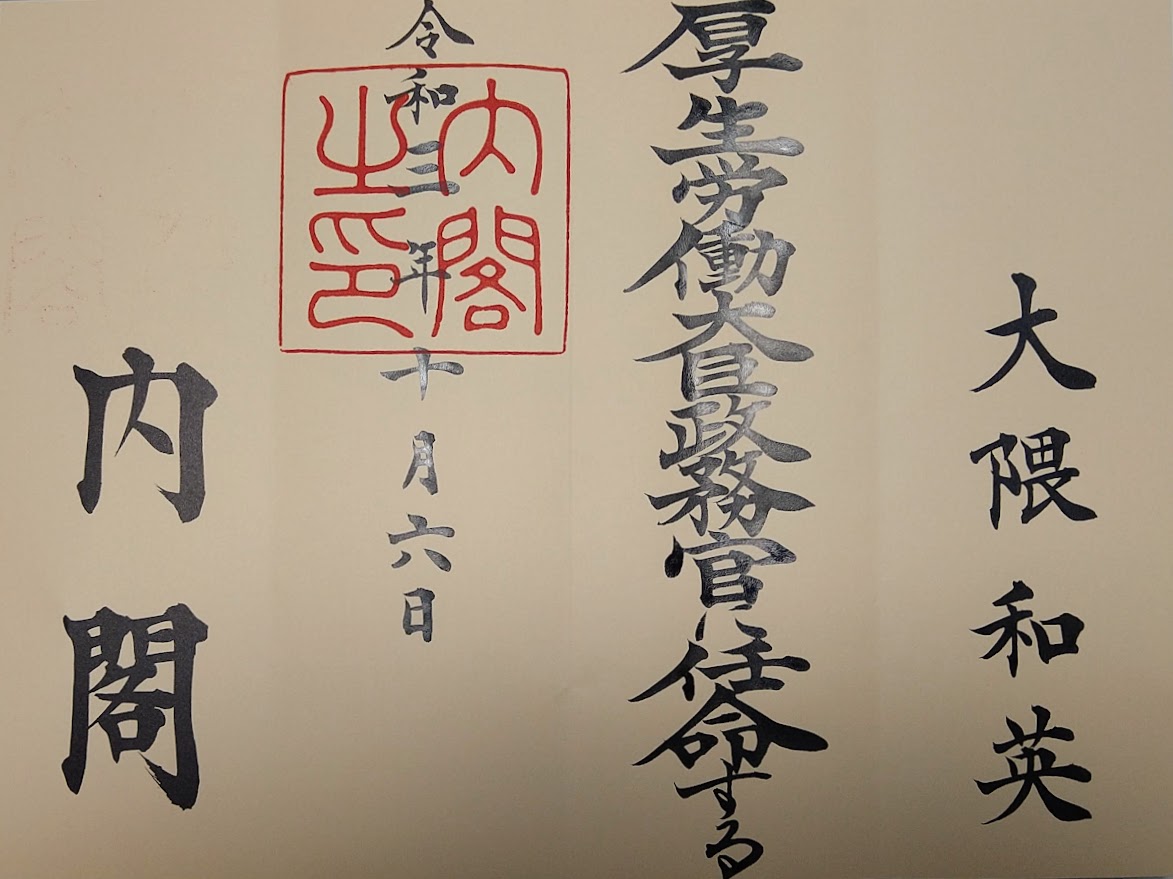 大隈和英
厚生労働大臣政務官に任命する
令和三年十月六日
内閣之印
内閣